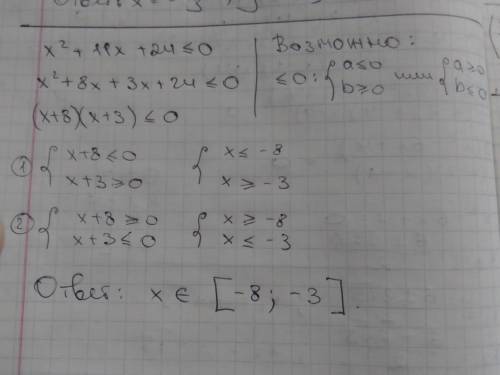 x² + 11x + 24 ≤ 0
x² + 8x + 3x + 24 ≤ 0
(x+8)(x+3) ≤ 0
Возможно:
≤ 0: { a ≤ 0 b ≥ 0 или { a ≥ 0 b ≤ 0
① { x+8 ≤ 0 { x ≤ -8
x+3 ≥ 0 x ≥ -3
② { x+8 ≥ 0 { x ≥ -8
x+3 ≤ 0 x ≤ -3
Ответ: x ∈ [-8; -3].